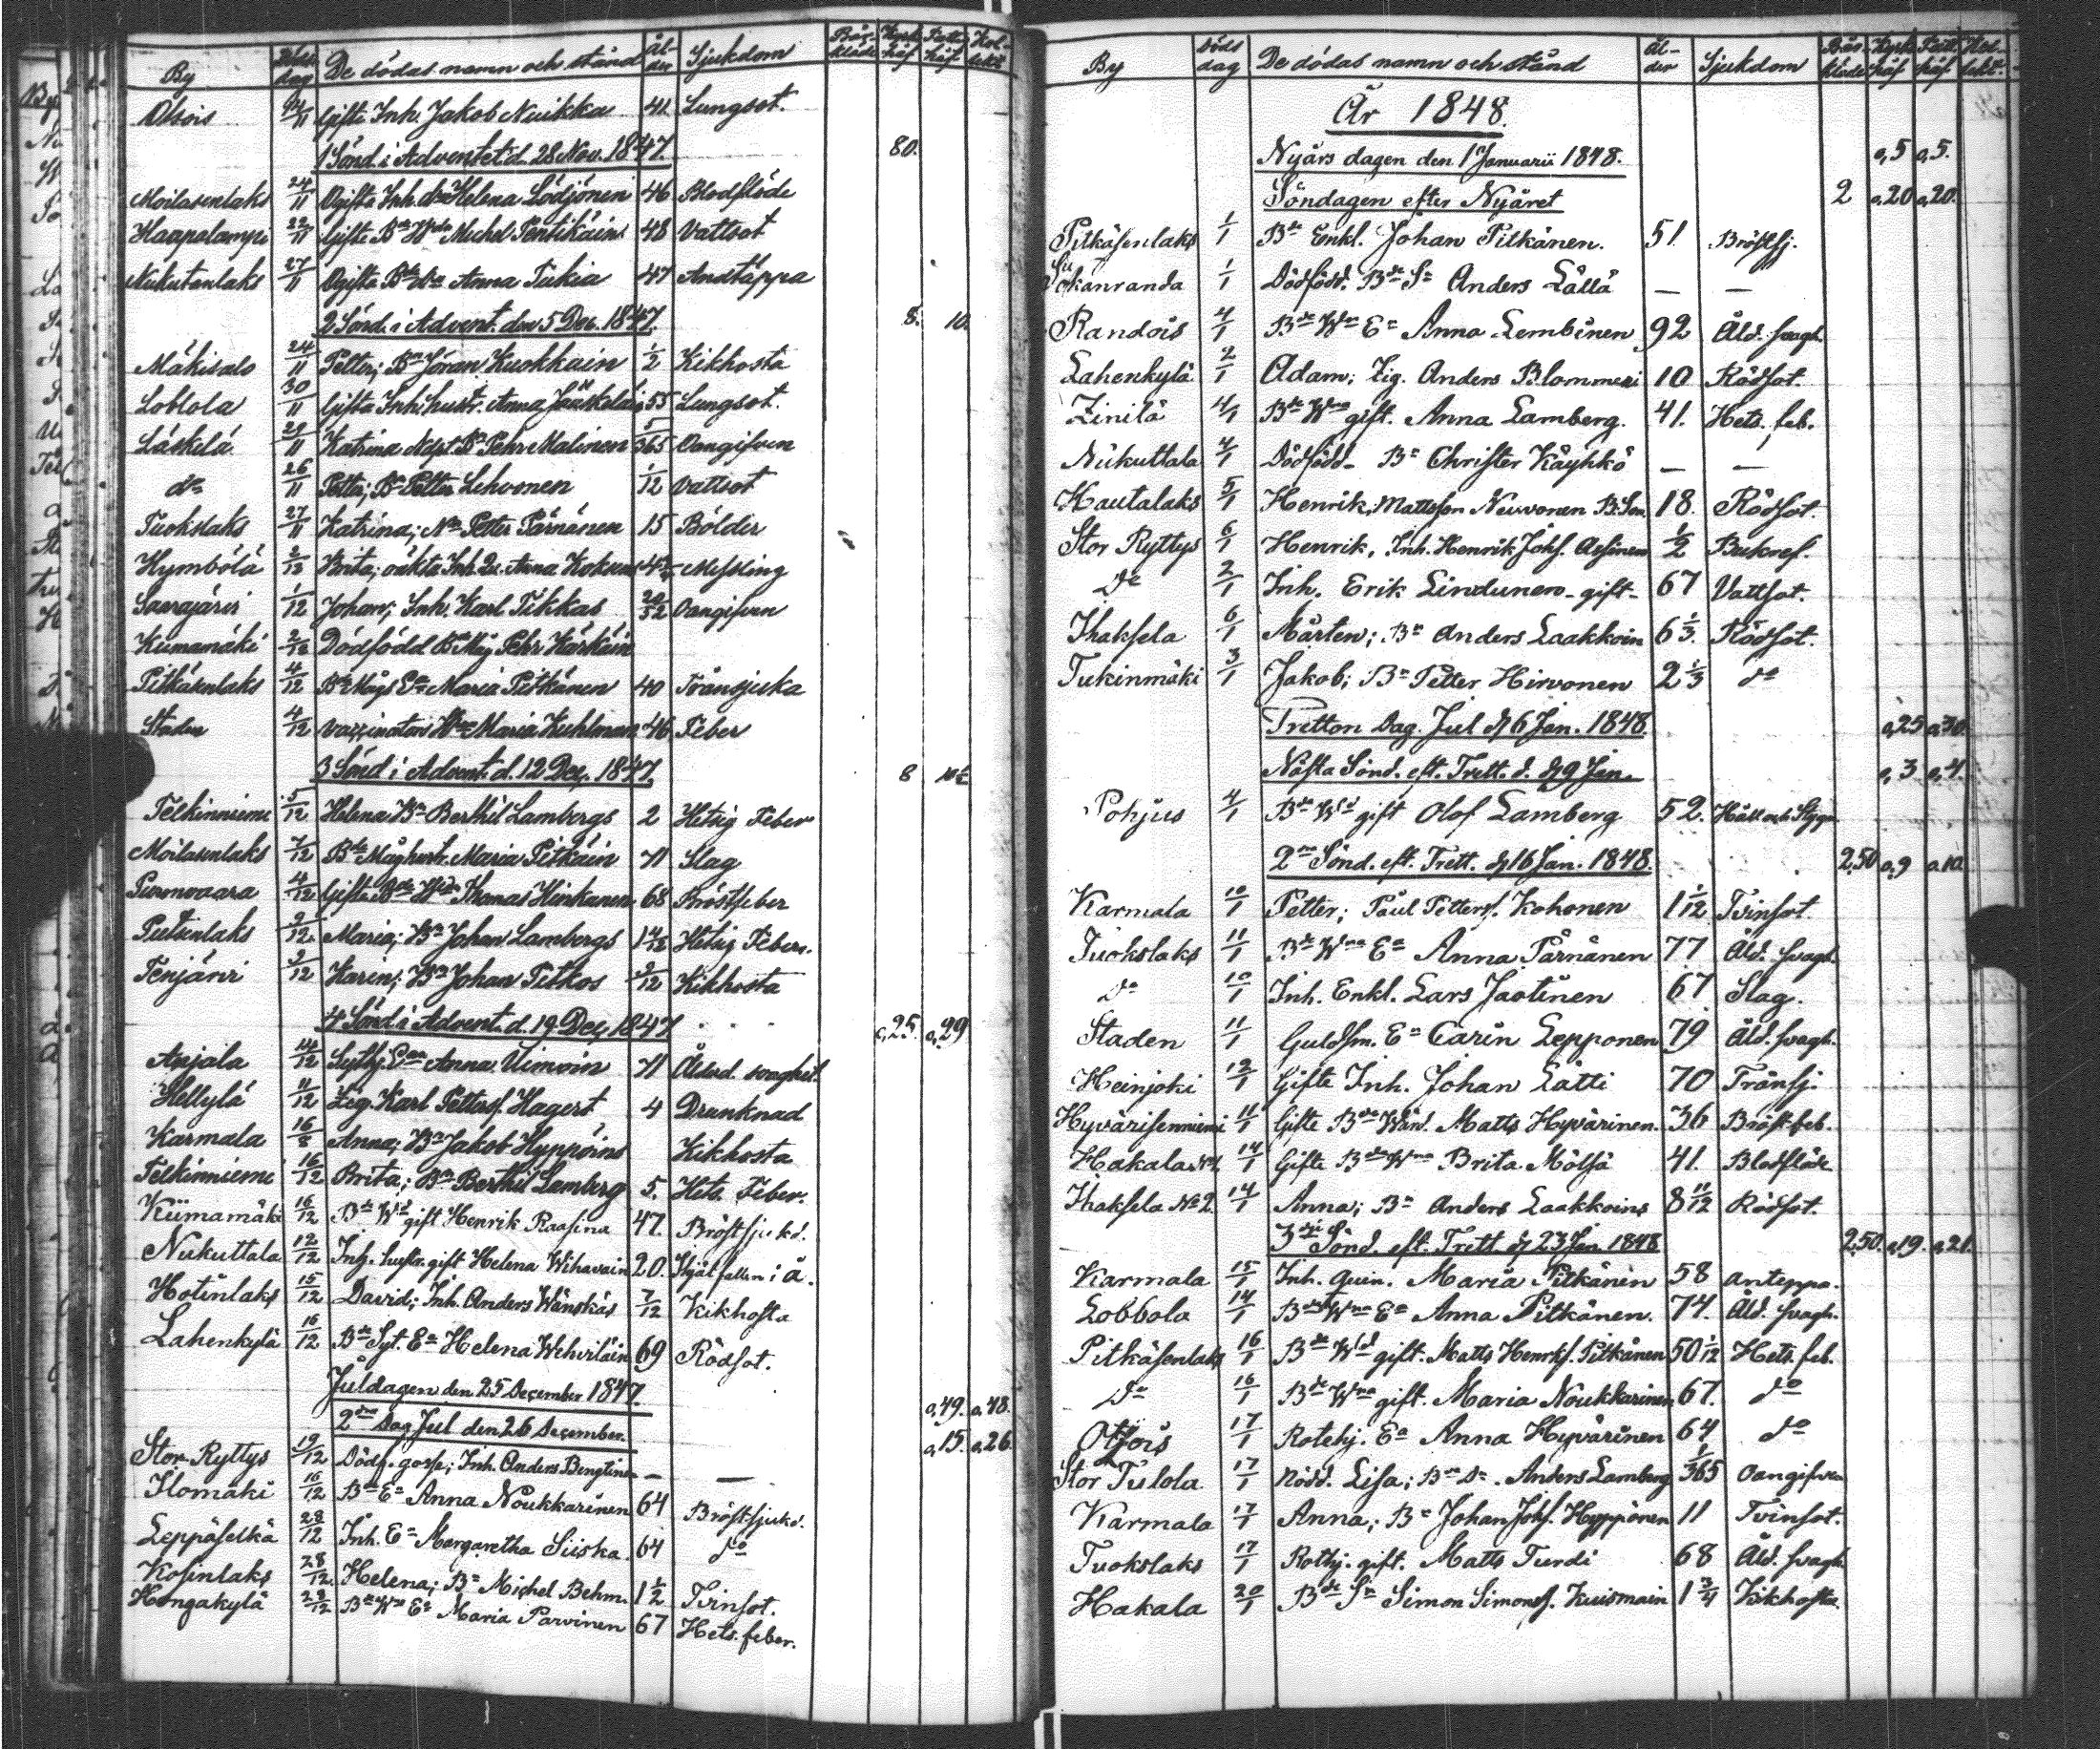 By Döds dag De dödas namn och stånd Ål-der Sjukdom Bår-kläde Kyrk håf Fatt. håf Kol-lekt
Otsois 24/11 Gifte Inh. Jakob Nuikka 41. Lungsot.
1 Sönd. i Adventet d. 28 Nov. 1847. 80.
Moilasenlaks 24/11 Ogifta Inh. Helena Lödjönen 46 Blodflöde
Haapalampi 22/11 Gifte Bde Michel Pentikäin 48 Vattsot
Nukutanlaks 27/11 Ogifta Bde Anna Tukia 47 Andtäppa
2 Sönd. i Advent. den 5 Dec. 1847. 8. 10.
Mäkisalo 24/11 Petter; Bn Jöran Kuokkain 1/2 Kikhosta
Lobbola 30/11 Gifta Inh. hustr. Anna Jääskeläin 55 Lungsot.
Läskelä 29/11 Katrina Nöpt. Bn Pehr Malinen 5/365 Oangifven
do 26/11 Petter; Bn Petter Lehvonen 1/12 Vattsot
Tuokslaks 27/11 Katrina; Petter Pärnänen 15 Bölder
Hymbölä 2/12 Brita; oäkta Inh. Anna Messling
Saarajärvi 1/12 Johan; Inh. Karl Tikkas 20/52 Oangifven
Kiimamäki 2/12 Dödfödd Bn Måg Pehr Kärkäin
Pitkäsenlaks 4/12 Bn Mågs Ea Maria Pitkänen 40 Trånsjuka
Staden 4/12 Vaxinatörs Maria Kuhlman 46 Feber
3 Sönd i Advent. d. 12 Dec. 1847. 8
Telkinniemi 5/12 Helena Bn Berthil Lambergs 2 Hetsig Feber
Moilasenlaks 7/12 Bde Måg hustr. Maria Pitkäin 71 Slag
Purnovaara 4/12 Gifte Bde Thomas Hinkanen 68 Bröstfeber
Putsinlaks 9/12 Maria; Bn Johan Lambergs Hetsig Feber.
Tenjärvi 9/12 Karin; Bn Johan Pitkos 9/12 Kikhosta
4 Sönd i Advent. d. 19 Dec. 1847 0,25. 0,29
Anjala 14/12 Anna Uimoin 71 Ålderd. svaghet.
Hellylä 11/12 Zig. Karl Petters. Hagert 4 Drunknad
Karmala Anna; Bn Jakob Hyppöins Kikhosta
Telkinniemi 16/12 Brita; Bn Berthil Lamberg 5. Hets. Feber.
Kiimamäki 16/12 Bde Wd gift Henrik Raasina 47. Bröstsjukd.
Nukuttala 12/12 Inh. hustr. gift Helena Wihavain 20. Ihjäl fallen i å.
Hotinlaks 15/12 David; Inh. Anders Wänskäs 7/12 Kikhosta
Lahenkylä 16/12 Bde Syt. Ea Helena Wehviläin 69 Rödsot.
Juldagen den 25 December 1847. 0,49. 0,48.
2dra Dag Jul den 26 December. 0,15. 0,26
Stor Ryttys 19/12 Dödf. gosse; Inh. Anders Bengtinen — —
Ilomäki 16/12 Bn Ea Anna Noukkarinen 64 Bröstsjukd.
Leppäselkä 28/12 Inh. Ea Margaretha Siiska. 64 do
Kosinlaks 28/12 Helena; Bn Michel Behm. 1 1/2 Tvinsot.
Hongakylä 29/12 Bde Wna Ea Maria Parvinen 67 Hets. feber.
By Döds dag De dödas namn och stånd Ål-der Sjukdom Bår-kläde Kyrk håf Fatt. håf Kol-lekt.
År 1848.
Nyårs dagen den 1 Januarii 1848. 0,5 0,5.
Söndagen efter Nyåret 2 0,20 0,20.
Pitkäsenlaks 1/1 Bde Enkl. Johan Pitkänen. 51. Bröstsj.
Siikanranda 1/1 Dödfödd. Bde Sn Anders Lällä — —
Randois 4/1 Bde Wna Ea Anna Lembinen 92 Åld. svagh.
Lahenkylä 2/1 Adam; Zig. Anders Blommeri 10 Rödsot.
Zinilä 4/1 Bde Wna gift. Anna Lamberg. 41. Hets. feb.
Nukuttala 4/1 Dödfödd— Bn Christer Käyhkö — —
Hautalaks 5/1 Henrik, Mattsson Neuvonen B. Son. 18. Rödsot.
Stor Ryttys 6/1 Henrik, Inh. Henrik Johs. Assinen 1/2 Bukref.
Do 2/1 Inh. Erik Lindunen— gift— 67 Vattsot.
Ihaksela 6/1 Mårten; Bn Anders Laakkoin 6 1/3. Rödsot.
Tukinmäki 3/1 Jakob; Bn Petter Hirvonen 2 1/3 do
Tretton Dag. Jul d. 6 Jan. 1848. 0,25 0,30.
Nästa Sönd. eft. Trett. d. d. 9 Jan. 0,3 0,4.
Pohjus 4/1 Bde Wd gift Olof Lamberg 52. Håll och Stygn
2dra Sönd. eft. Trett. d. 16 Jan. 1848. 2,50 0,9 0,10.
Karmala 10/1 Petter; Paul Petters. Kohonen 1 1/12 Tvinsot.
Tuokslaks 11/1 Bde Wna Ea Anna Pärnänen 77 Åld. svagh.
Do 10/1 Inh. Enkl. Lars Jaatinen 67 Slag.
Staden 11/1 Guldsm. Ea Carin Lepponen 79 Åld. svagh.
Heinjoki 12/1 Gifte Inh. Johan Lätti 70 Trånsj.
Hyvärisenniemi 11/1 Gifte Bde Wärd. Matts Hyvärinen. 36 Bröst feb.
Hakala 14/1 Gifte Bde Wna Brita Mölsä 41. Blodflöde
Ihaksela No 2. 14/1 Anna; Bn Anders Laakkoins 8 11/12 Rödsot.
3dje Sönd. eft. Trett d. 23 Jan. 1848 2,50. 0,19. 0,21.
Karmala 15/1 Inh. Quin. Maria Pitkänen 58 anteppa.
Lobbola 14/1 Bde Wna Ea Anna Pitkänen. 74. Åld. svagh.
Pitkäsenlaks 16/1 Bde Wd gift. Matts Henriks. Pitkänen 50 1/12 Hets. feb.
Do 16/1 Bde Wna gift. Maria Noukkarinen 67. do
Otsois 17/1 Rotehj. Ea Anna Hyvärinen 64 do
Stor Tulola 17/1 Nödd. Lisa; Bn Anders Lamberg 1/365 oangifven
Karmala 17/1 Anna; Bn Johan Johs. Hyppönen 11 Tvinsot.
Tuokslaks 17/1 Rothj. gift. Matts Turdi 68 Åld. svagh.
Hakala 20/1 Bde Sn Simon Simons. Kuismain 1 3/4 Kikhosta.